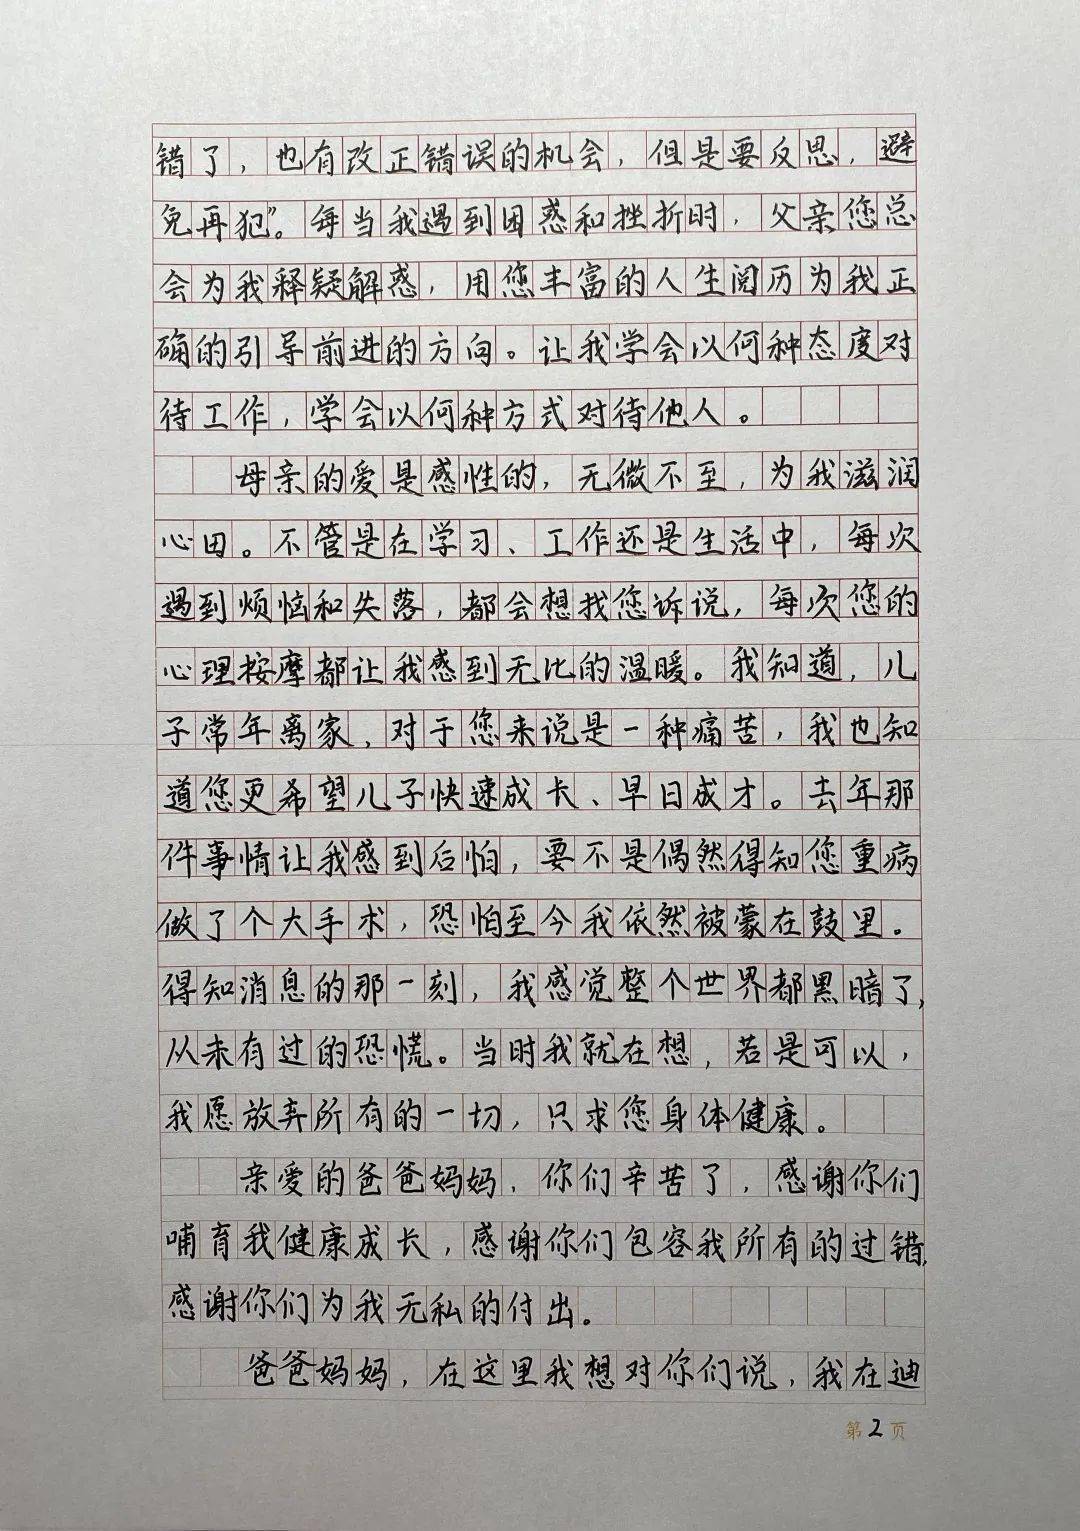 错了，也有改正错误的机会，但是要反思，避
免再犯”。每当我遇到困惑和挫折时，父亲您总
会为我释疑解惑，用您丰富的人生阅历为我正
确的引导前进的方向。让我学会以何种态度对
待工作，学会以何种方式对待他人。
母亲的爱是感性的，无微不至，为我滋润
心田。不管是在学习、工作还是生活中，每次
遇到烦恼和失落，都会想找您诉说，每次您的
心理按摩都让我感到无比的温暖。我知道，儿
子常年离家，对于您来说是一种痛苦，我也知
道您更希望儿子快速成长、早日成才。去年那
件事情让我感到后怕，要不是偶然得知您重病
做了个大手术，恐怕至今我依然被蒙在鼓里。
得知消息的那一刻，我感觉整个世界都黑暗了，
从未有过的恐慌。当时我就在想，若是可以，
我愿放弃所有的一切，只求您身体健康。
亲爱的爸爸妈妈，你们辛苦了，感谢你们
哺育我健康成长，感谢你们包容我所有的过错，
感谢你们为我无私的付出。
爸爸妈妈，在这里我想对你们说，我在迪
第2页